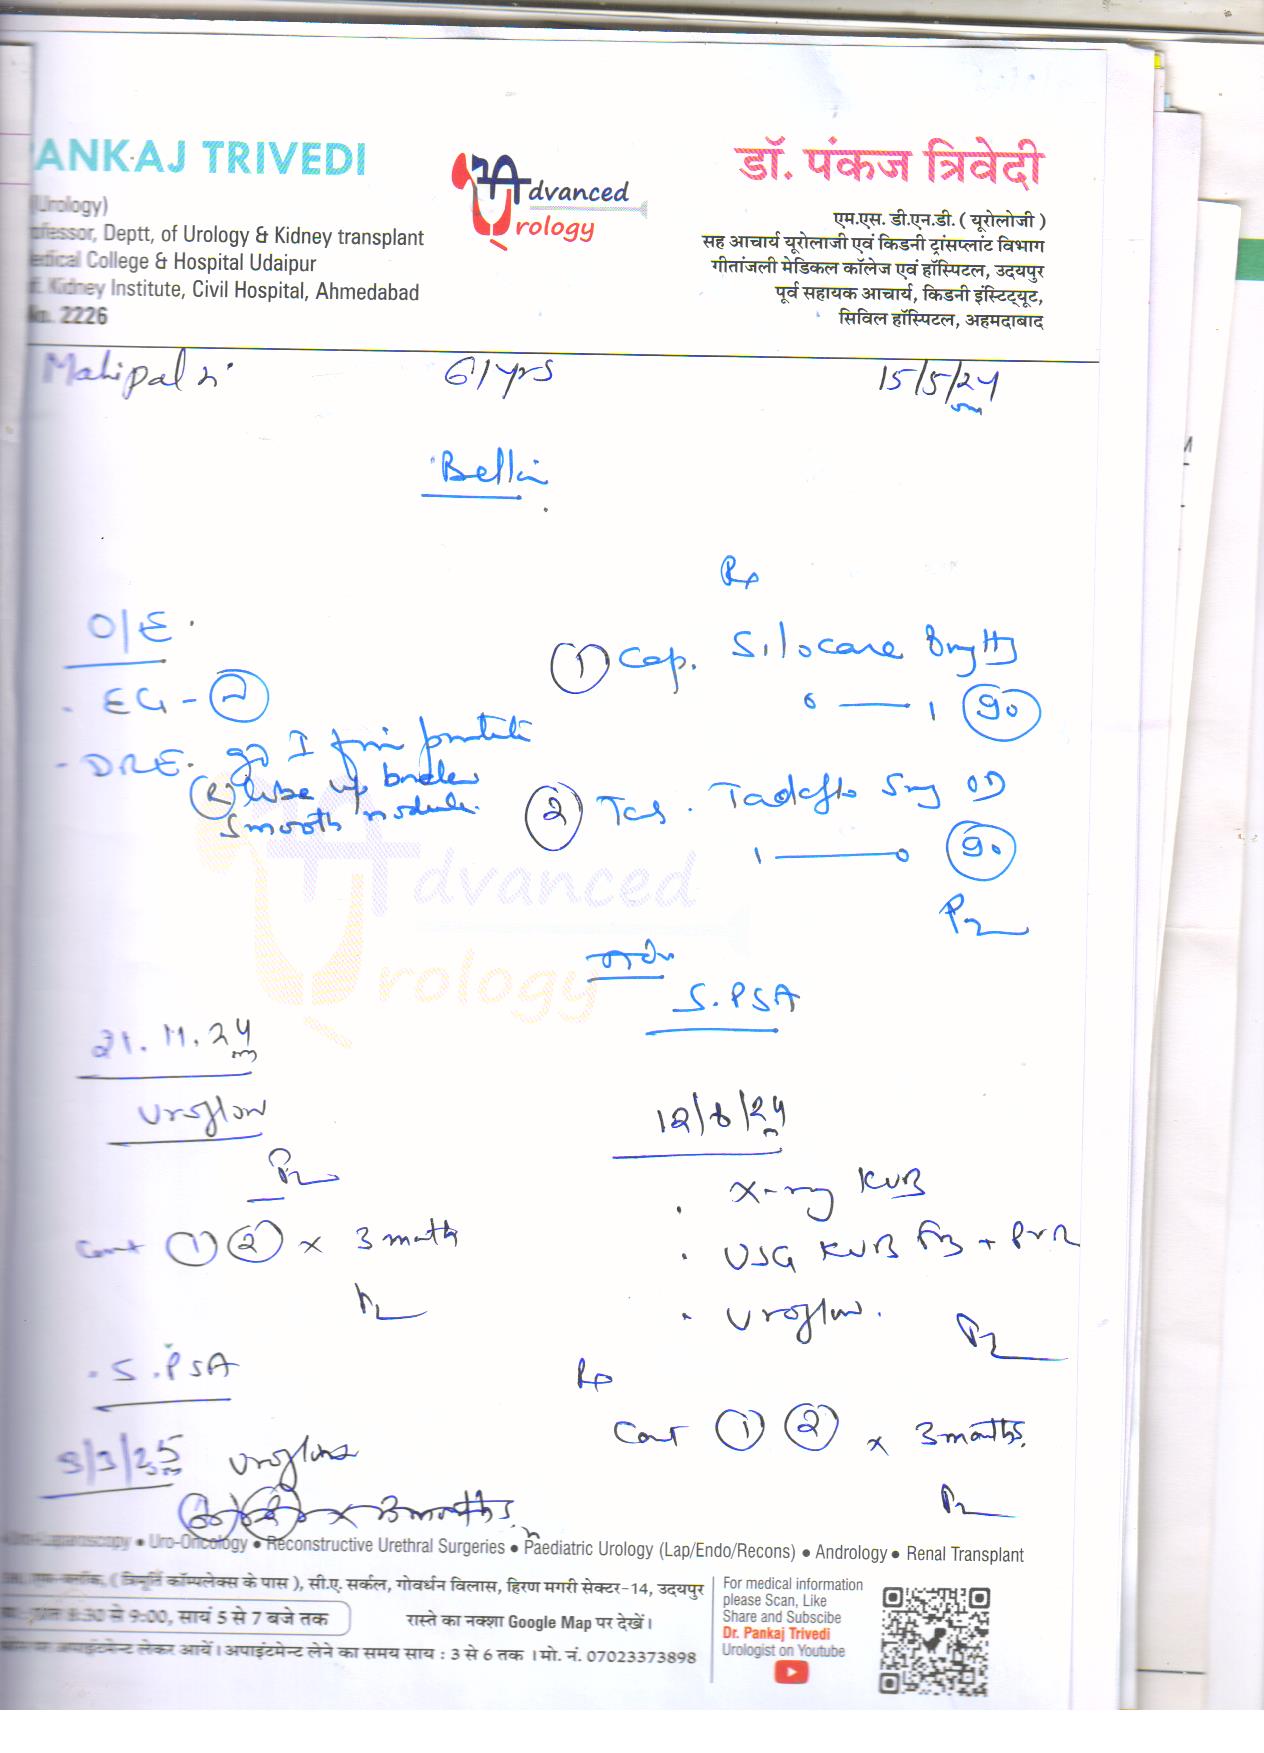 PANKAJ TRIVEDI
(Urology)
Professor, Deptt, of Urology & Kidney transplant
Medical College & Hospital Udaipur
Kidney Institute, Civil Hospital, Ahmedabad
No. 2226
Advanced
Urology
डॉ. पंकज त्रिवेदी
एम.एस. डी.एन.डी. ( यूरोलोजी )
सह आचार्य यूरोलाजी एवं किडनी ट्रांसप्लांट विभाग
गीतांजली मेडिकल कॉलेज एवं हॉस्पिटल, उदयपुर
पूर्व सहायक आचार्य, किडनी इंस्टिट्यूट,
सिविल हॉस्पिटल, अहमदाबाद
Mahipal S. 61yrs 15/5/24
Rx
O/E.
① Cap. Silocare 8mg HS
0 — 1 (90)
. EG - N
- DRE. gr I firm prostate
(R) lobe
smooth nodule.
② Tab. Tadaflo 5mg OD
1 — 0 (90)
Advanced
Urology
S. PSA
21. 11. 24
Uroflow
Cont ① ② x 3 month
. S. PSA
12/8/24
. X-ray KUB
. USG KUB + PVR
. Uroflow.
Rx
Cont ① ② x 3 months.
3/3/25 Uroflow
① ② x 3 months.
Laparoscopy • Uro-Oncology • Reconstructive Urethral Surgeries • Paediatric Urology (Lap/Endo/Recons) • Andrology • Renal Transplant
( त्रिमूर्ति कॉम्पलेक्स के पास ), सी.ए. सर्कल, गोवर्धन विलास, हिरण मगरी सेक्टर-14, उदयपुर
8:30 से 9:00, सायं 5 से 7 बजे तक
रास्ते का नक्शा Google Map पर देखें।
अपाइंटमेन्ट लेकर आयें। अपाइंटमेन्ट लेने का समय साय : 3 से 6 तक । मो. नं. 07023373898
For medical information
please Scan, Like
Share and Subscibe
Dr. Pankaj Trivedi
Urologist on Youtube